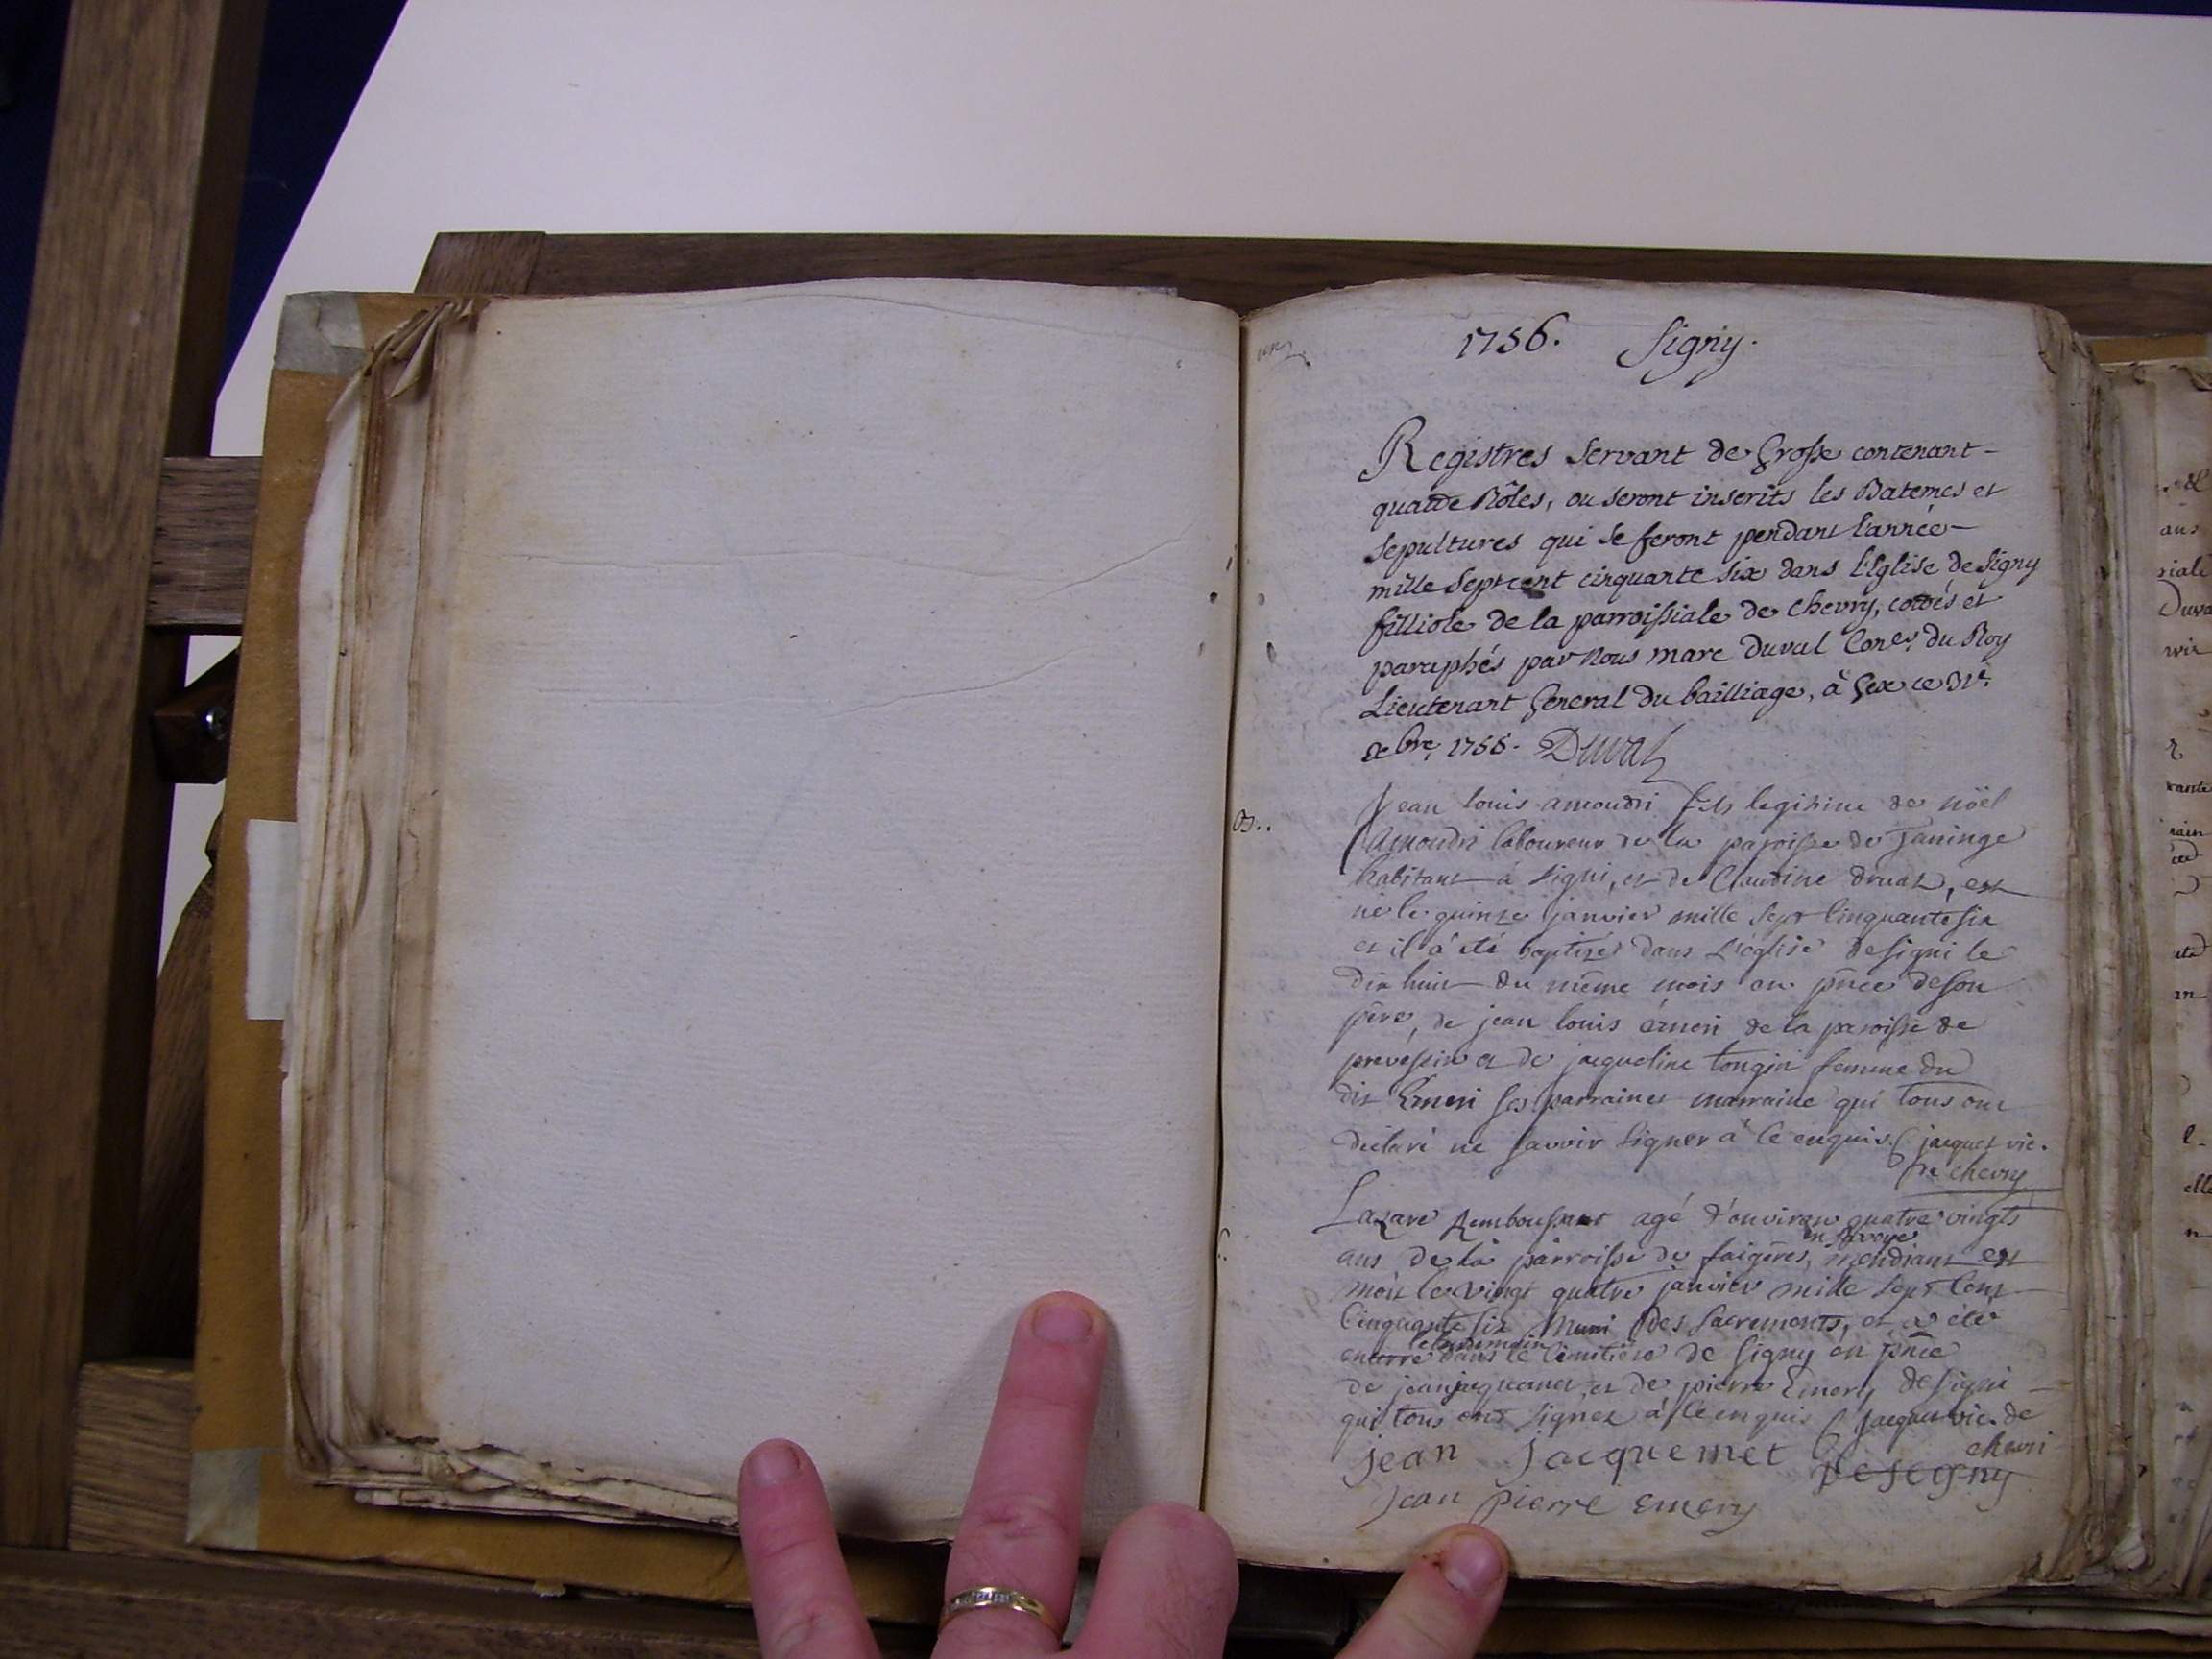 1756. Signy.
Registres servant de Grosse contenant
quatre Rôles, ou seront inscrits les Batemes et
sepultures qui se feront pendant l'année
mille sept cent cinquante six dans l'Eglise de Signy
filliole de la parroissiale de chevry, cottés et
paraphés par nous marc Duval Coner. du Roy
Lieutenant General du bailliage, à Gex ce 31e.
xbre 1755. Duval
B..
Jean louis amoudri fils legitime de noël
amoudri laboureur de la paroisse de Taninge
habitant à Signi, et de Claudine druat, est
né le quinze janvier mille sept Cinquante six
et il a été baptizé dans L'église de signi le
dix huit du même mois en pnce de son
père, de jean louis émeri de la paroisse de
prevessin et de jacqueline tongin femme du
dit Emeri ses parrain et marraine qui tous ont
declaré ne savoir signer à ce enquis. jacquet vic.
de chevry
S.
Lazare agé d'environ quatre vingts
ans de la parroisse de faigères, en Savoye mendiant est
mort le vingt quatre janvier mille sept Cent
Cinquante six Muni des Sacrements, et a été
enterré le lendemain dans le Cimitière de Signy en pnce
de jean jacquemet, et de pierre Emery de Signi
qui tous ont signez à ce enquis jacquet vic. de
chevri
jean jacquemet De segny
Jean pierre emery